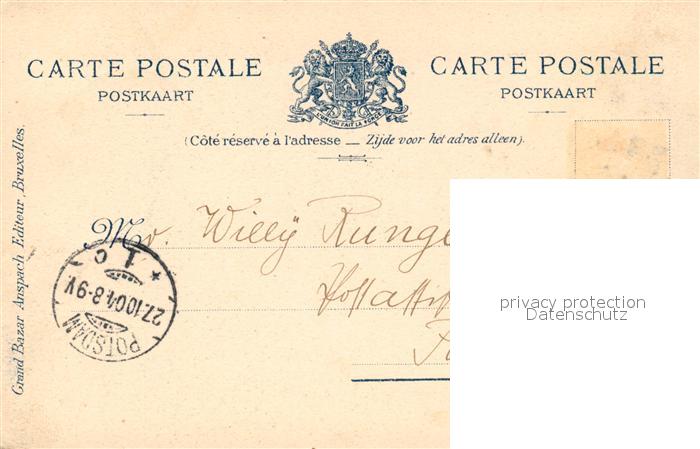 CARTE POSTALE
POSTKAART
L'UNION FAIT LA FORCE
CARTE POSTALE
POSTKAART
(Côté réservé à l'adresse — Zijde voor het adres alleen).
Grand Bazar Anspach Editeur, Bruxelles.
Mr. Willÿ Runge
POTSDAM
* 1 c
27.10.04.8-9V.
privacy protection
Datenschutz